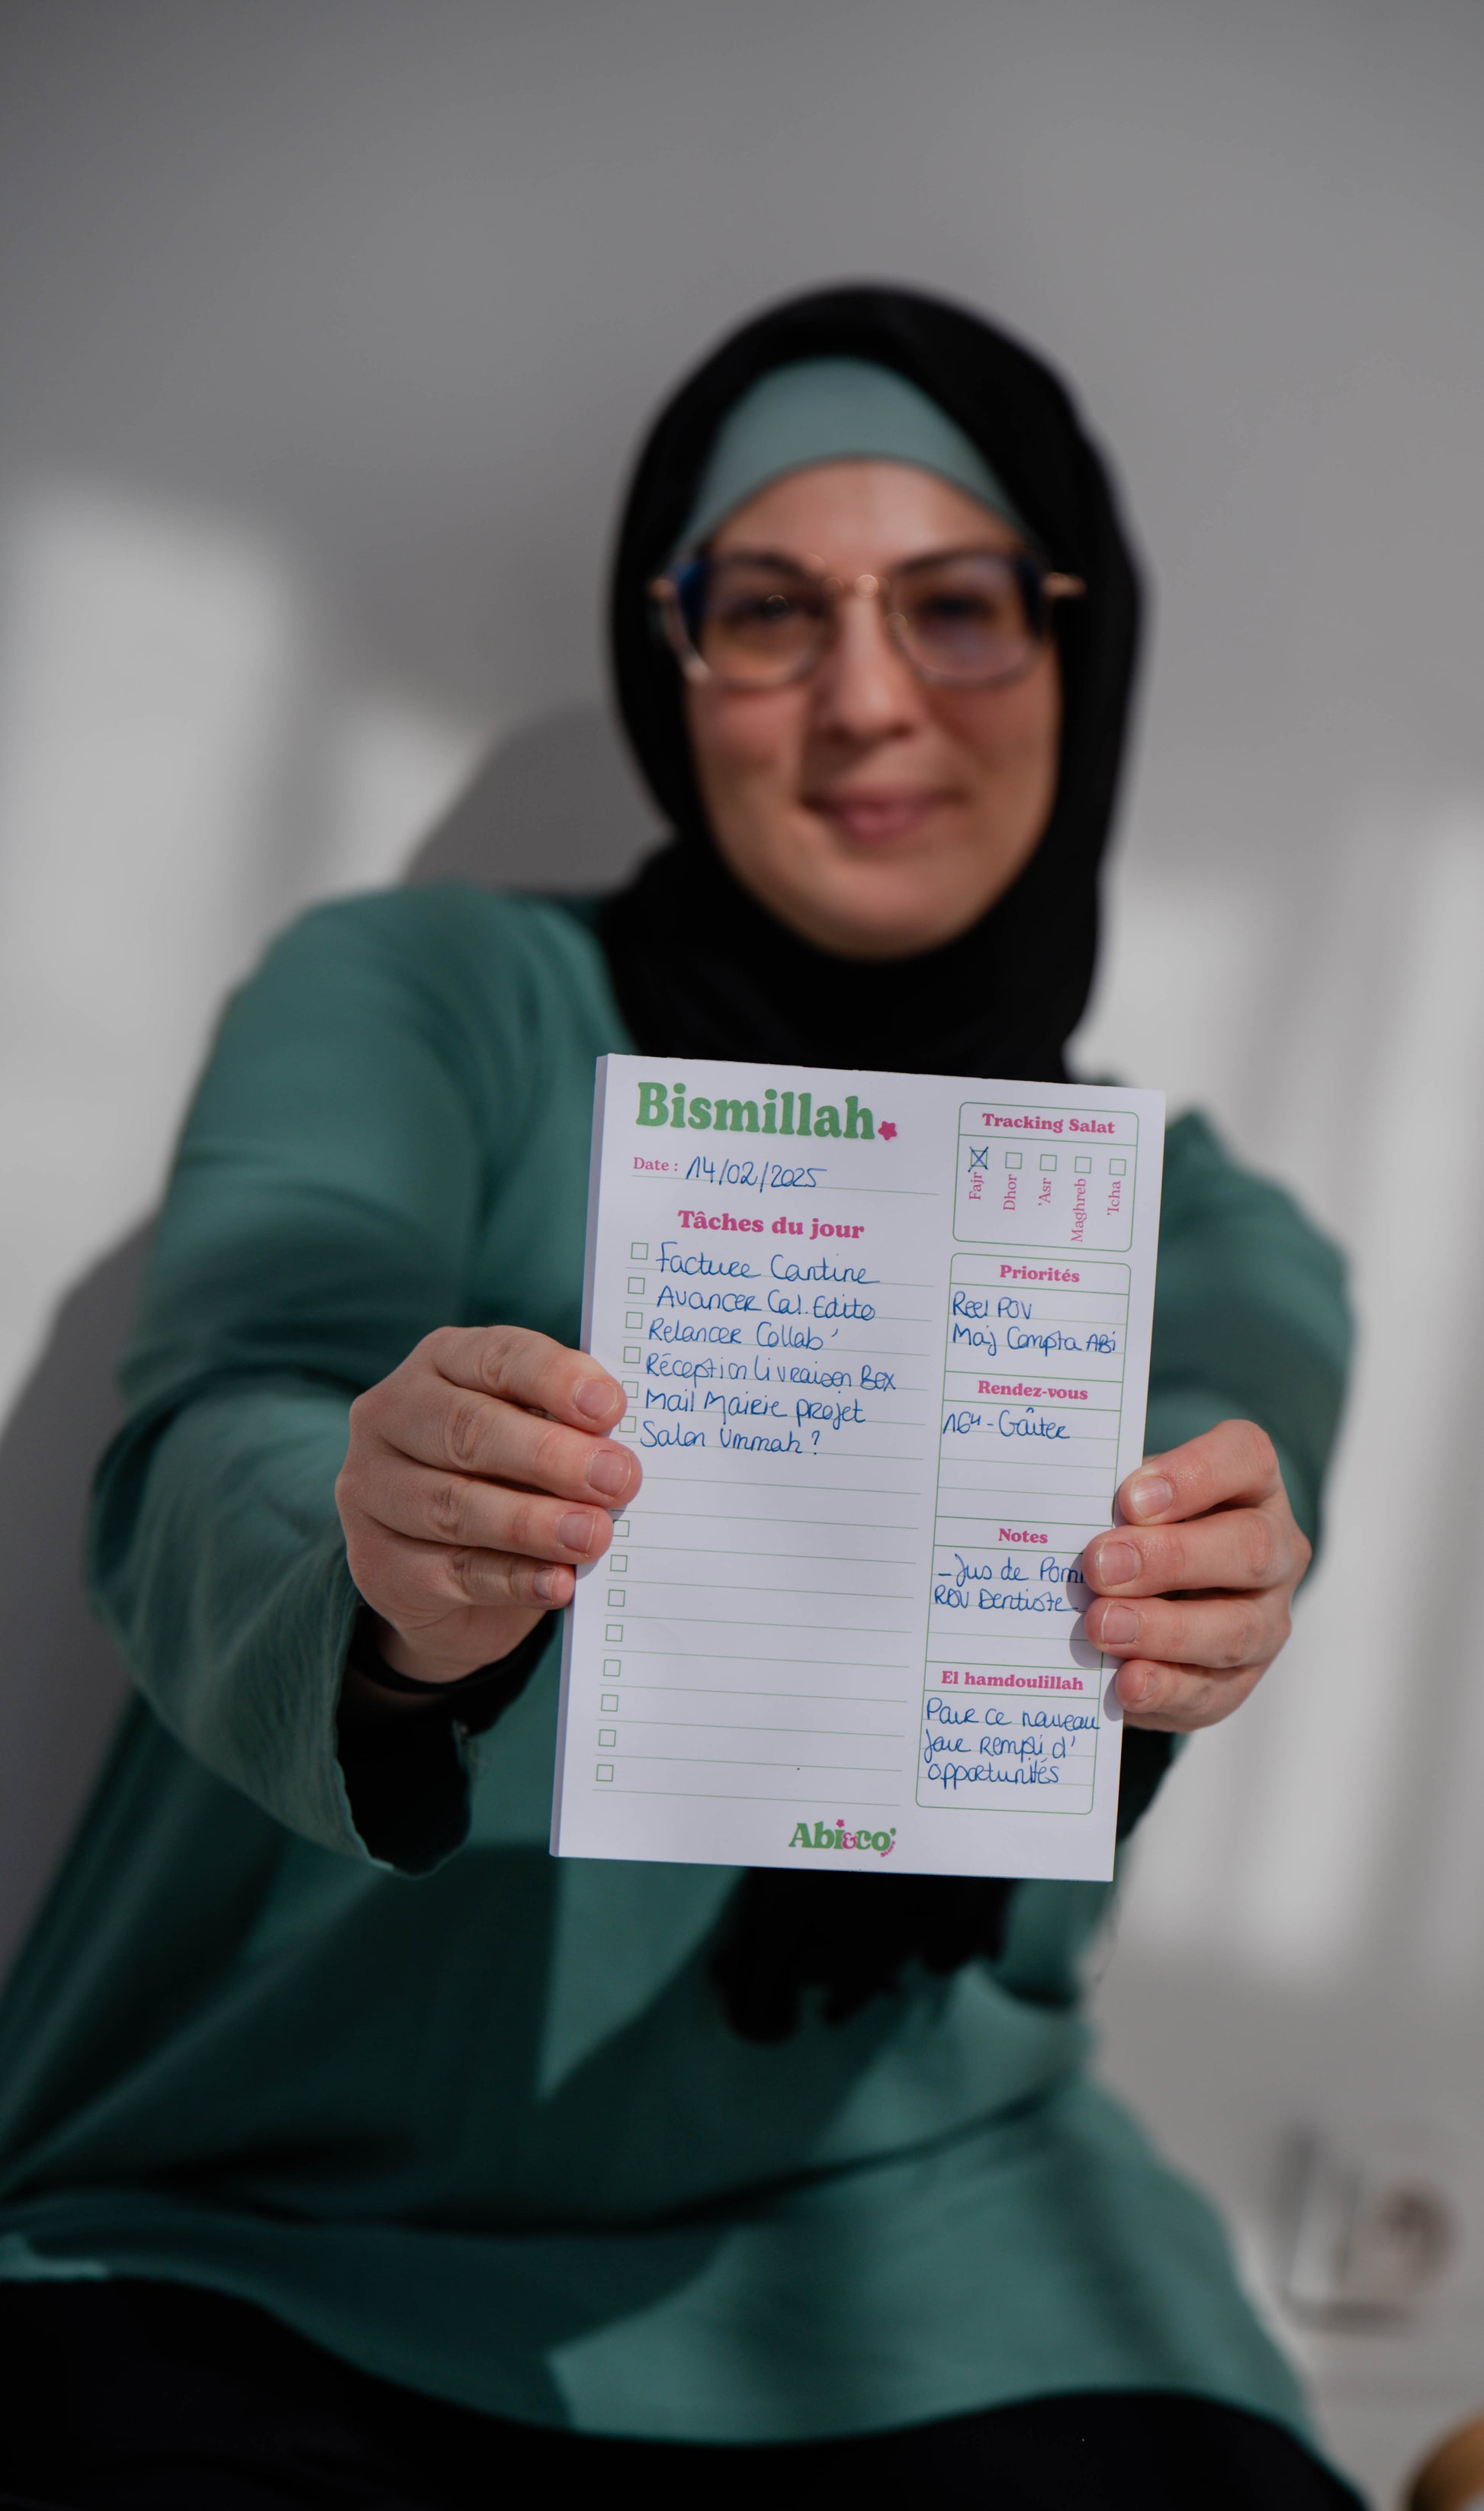 Bismillah
Date : 14/02/2025
Tâches du jour
Facture Cantine
Avancer Cal. Edito
Relancer Collab'
Réception Livraison Box
Mail Mairie projet
Salon Ummah ?
Tracking Salat
Fajr
Dhor
'Asr
Maghreb
'Icha
Priorités
Reel POV
Maj Compta ABi
Rendez-vous
16H - Goûter
Notes
- Jus de
RDV Dentiste
El hamdoulillah
Pour ce nouveau
jour rempli d'
opportunités
Abi&co'